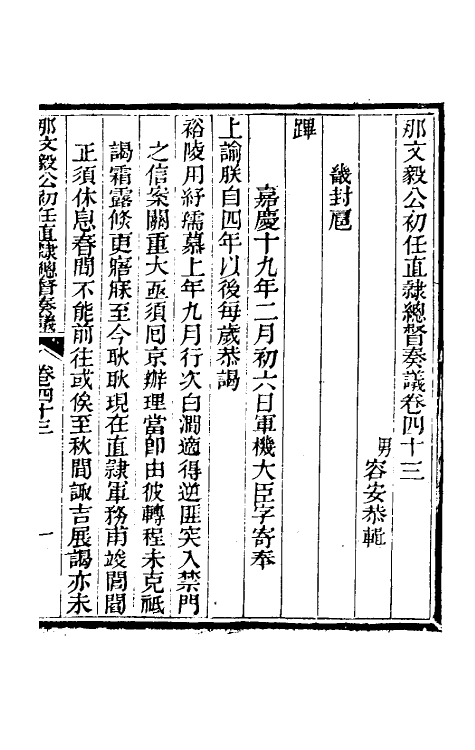 那文毅公初任直隸總督奏議卷四十三
男容安恭輯
畿封扈
蹕
嘉慶十九年二月初六日軍機大臣字寄奉
上諭朕自四年以後每歲恭謁
裕陵用紓孺慕上年九月行次白澗適得逆匪突入禁門
之信案關重大亟須囘京辦理當卽由彼轉程未克祗
謁霜露倏更寤寐至今耿耿現在直隸軍務甫竣閭閻
正須休息春間不能前往或俟至秋間諏吉展謁亦未
那文毅公初任直隸總督奏議
卷四十三
一